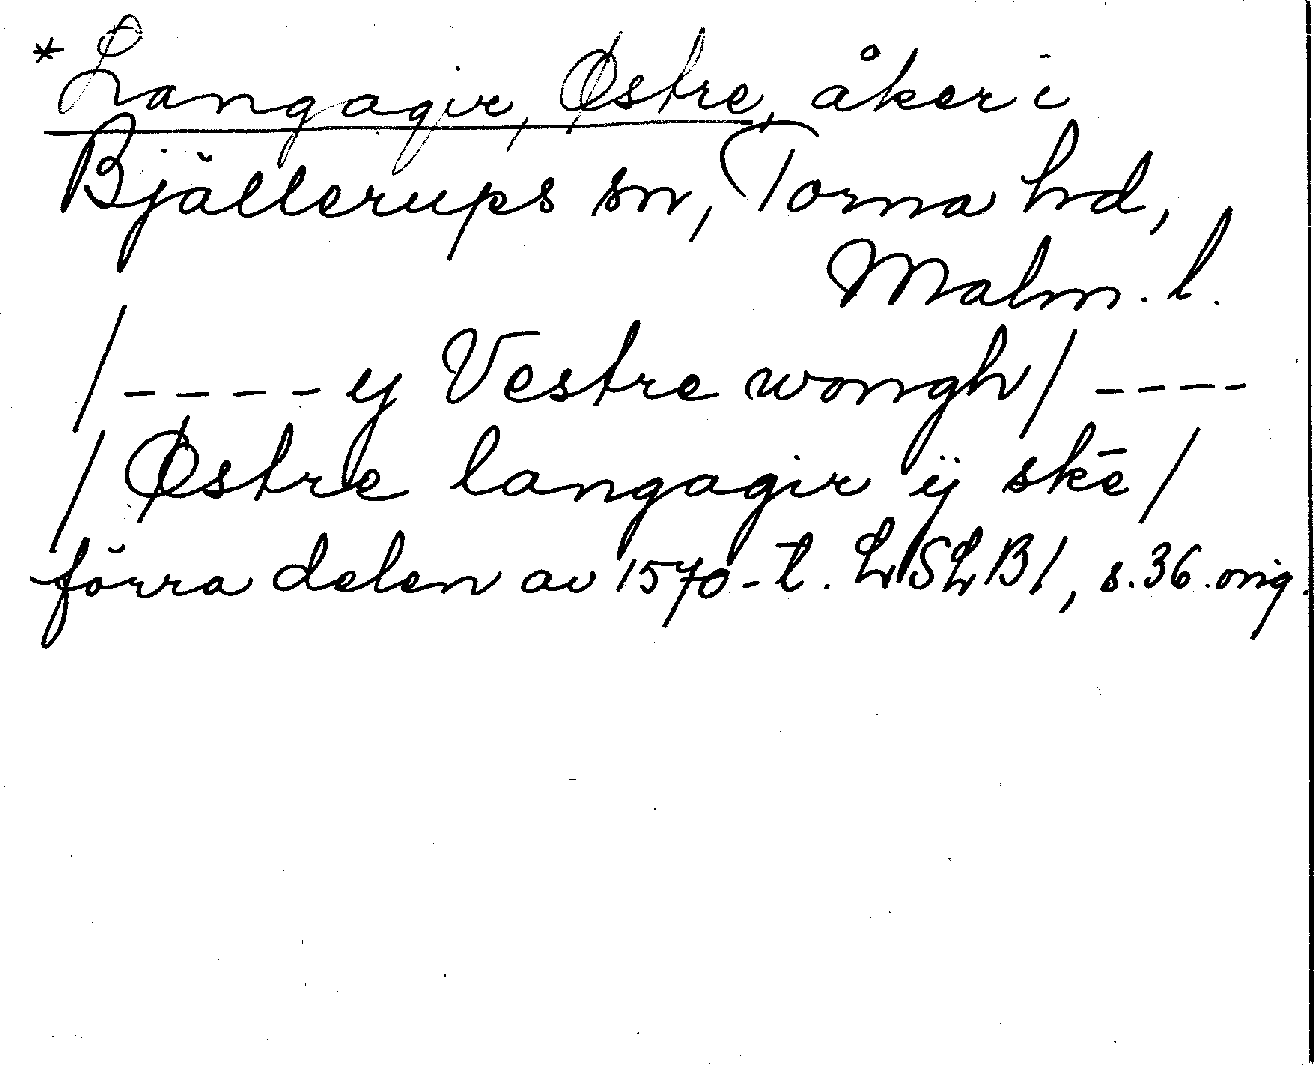 *Langagir, Østre, åker i
Bjällerups sn, Torna hd,
Malm. l.
/ - - - - y Vestre wongh / - - - -
/ Østre langagir ÿ skē /
förra delen av 1570-t. LSLB1, s. 36. orig.